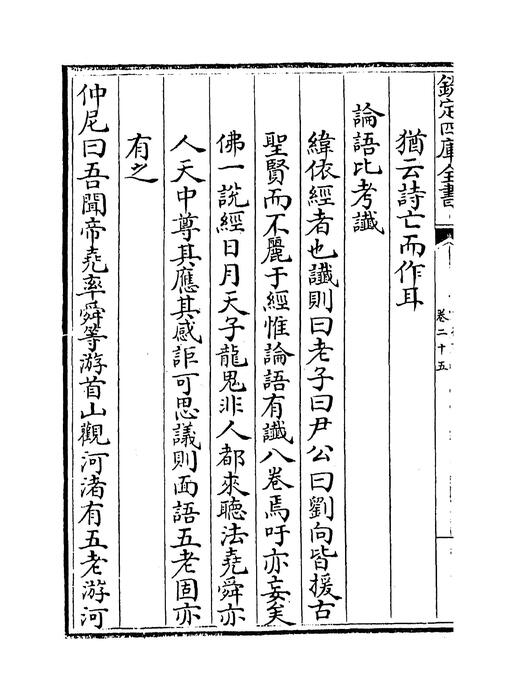 欽定四庫全書
卷二十五
猶云詩亡而作耳
論語比考讖
緯依經者也讖則曰老子曰尹公曰劉向皆援古
聖賢而不麗于經惟論語有讖八卷焉吁亦妄矣
佛一說經日月天子龍鬼非人都來聽法堯舜亦
人天中尊其應其感詎可思議則面語五老固亦
有之
仲尼曰吾聞帝堯率舜等游首山觀河渚有五老游河